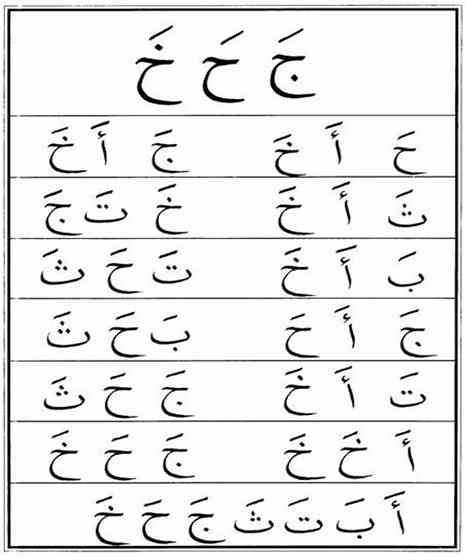 جَ حَ خَ
حَ أَ خَ جَ أَ خَ
ثَ أَ خَ خَ تَ جَ
بَ أَ خَ تَ حَ ثَ
جَ أَ حَ بَ حَ ثَ
تَ أَ خَ جَ حَ ثَ
أَ خَ خَ جَ حَ خَ
أَ بَ تَ ثَ جَ حَ خَ